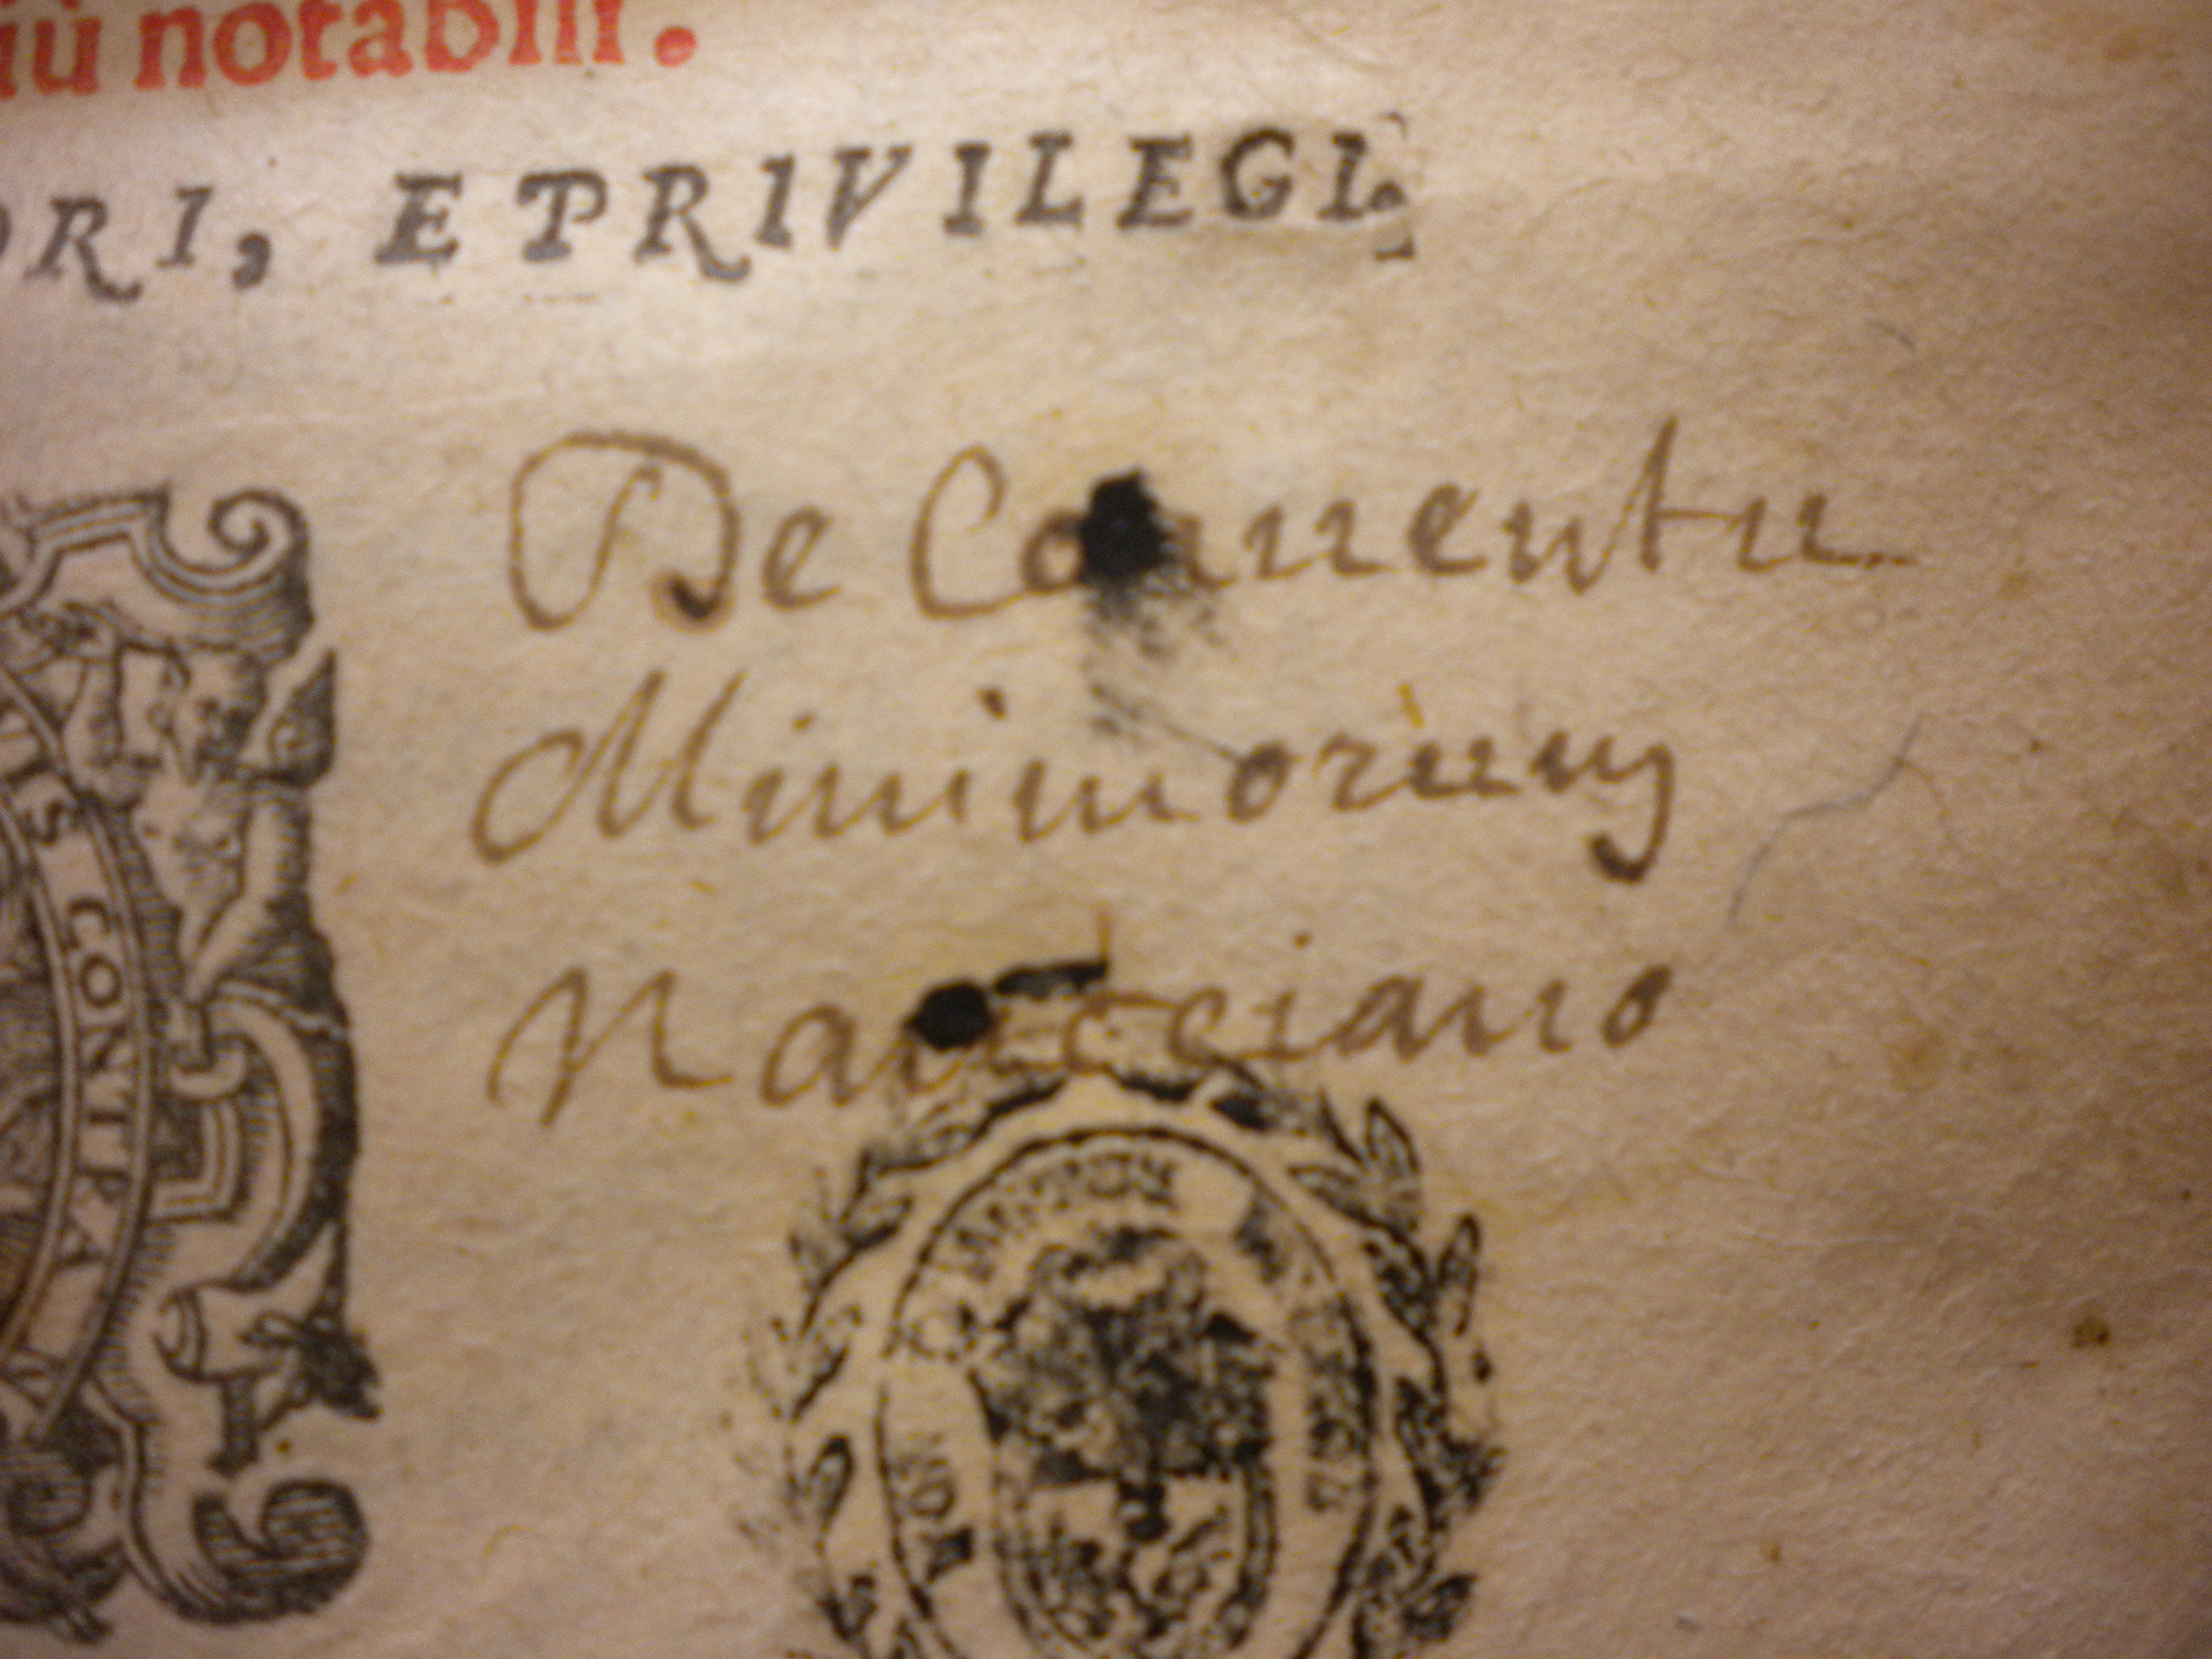 iù notabili.
ORI, E PRIVILEGI.
De Conuentu
Minimorum
IS CONTRA